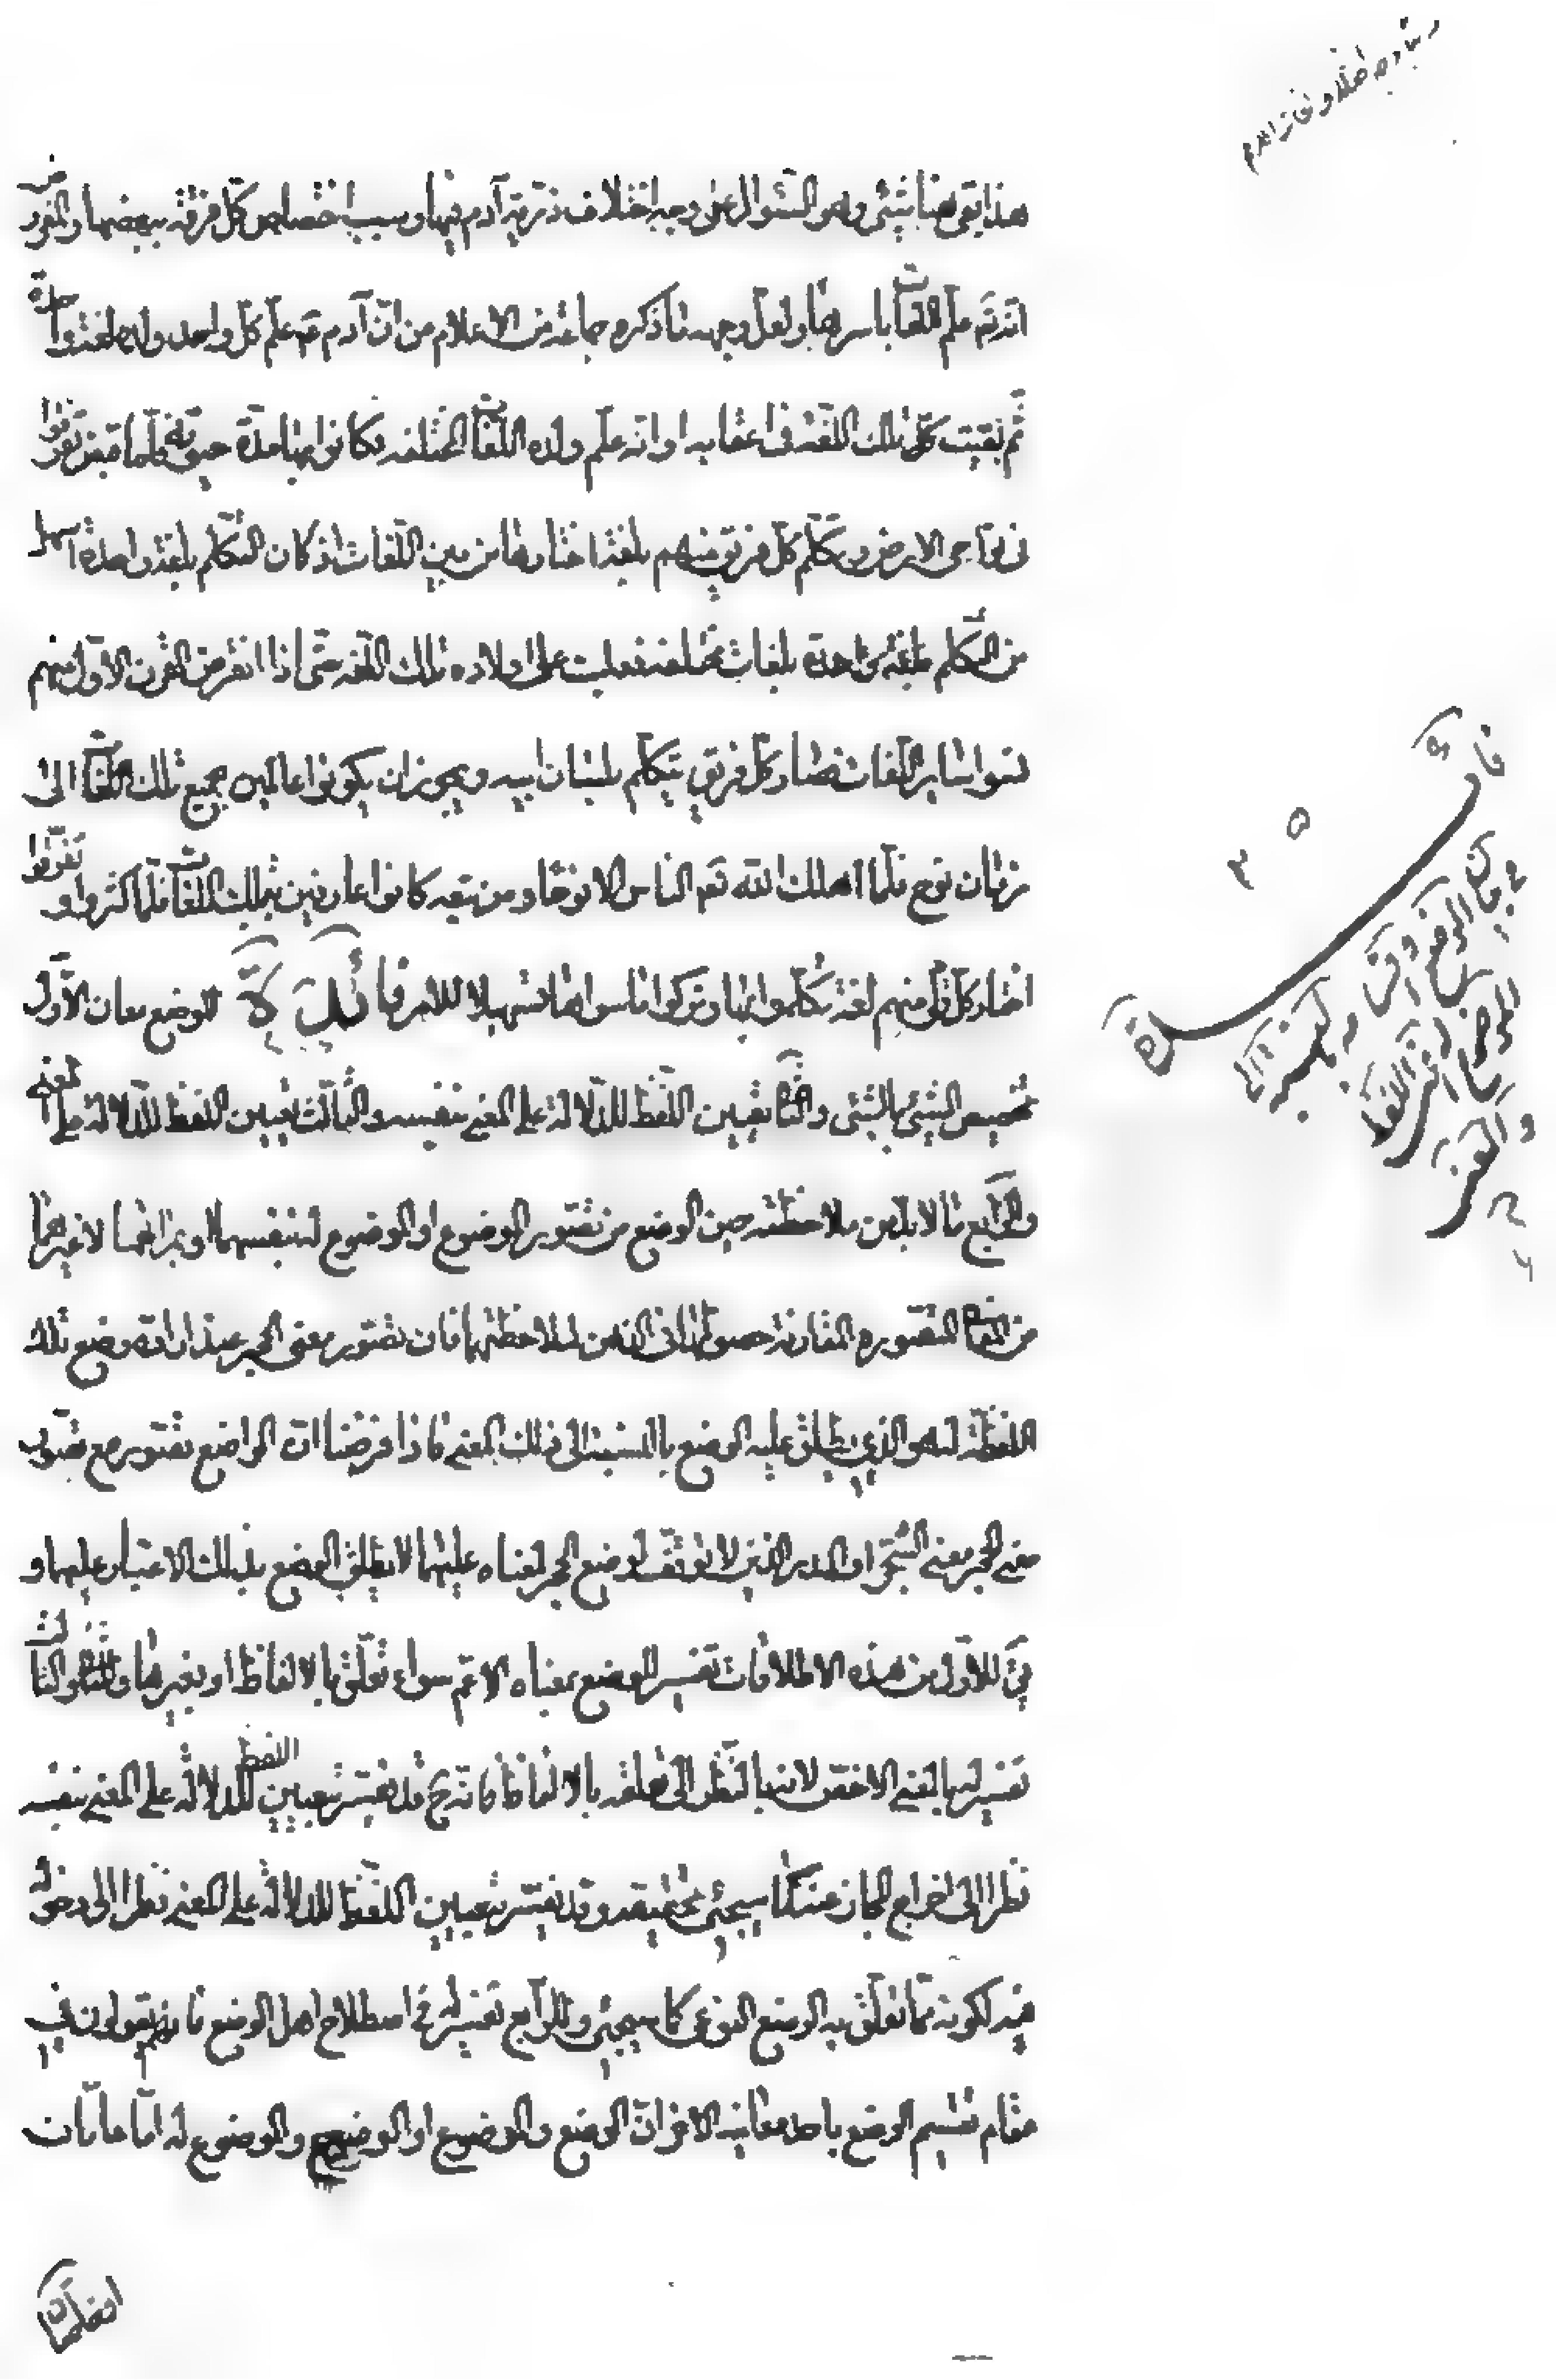 هذا بقى هنا شئ وهو السؤال عن وجه اختلاف ذرية آدم فيها وسبب اختصاص كل فرقة ببعضها والمفروض
انه تع علم اللغات باسرها ولعل وجهه ما ذكره جماعة من الاعلام من ان آدم ع علم كل واحد ولده لغة واحدة
ثم بقيت تلك اللغة في اعقابه او انه علم ولده اللغات المختلفة فكانوا بها مدة حيوته فلما قبض تفرقوا
في نواحى الارض وتكلم كل فريق منهم بلغة اختارها من بين اللغات اذ كان التكلم بلغة واحدة اسهل
من التكلم بلغات مختلفة فغلبت على اولاده تلك اللغة حتى اذا انقرض القرن الاول منهم
نسوا ساير اللغات فصار كل فريق يتكلم بلسان ابيه ويجوز ان يكونوا عالمين بجميع تلك اللغات الى
زمان نوح فلما اهلك الله تع الناس الا نوحا ومن تبعه كانوا عارفين بتلك اللغات فلما كثروا وتفرقوا
اختار كل فريق منهم لغة تكلموا بها وتركوا ما سواها تسهيلا للامر فائدة للوضع معان الاول
تخصيص الشئ بالشئ والثاني تعيين اللفظ للدلالة على المعنى بنفسه والثالث تعيين اللفظ للدلالة على المعنى
والرابع ما لا بد من ملاحظته حين الوضع من تصور الموضوع او الموضوع له بنفسهما او بمرآتهما لا غيرهما
من المعاني المتصورة المقارنة حصولها في الذهن لملاحظتهما فان تصور معنى الحجر عند ارادة وضع تلك
اللفظة له هو الذي يطلق عليه الوضع بالنسبة الى ذلك المعنى فاذا فرضنا ان الواضع يتصور مع تصور
معنى الحجر معنى الشجر او المدر الذين لا يتوقف وضع الحجر لمعناه عليهما لا يطلق الوضع بذلك الاعتبار عليهما و
للاول من هذه الاطلاقات تفسير للوضع بمعناه الاعم سواء تعلق بالالفاظ او بغيرها والثاني والثالث
تفسير له بالمعنى الاخص لانه بالنظر الى تعلقه بالالفاظ فانه ح قد يفسر بتعيين اللفظ للدلالة على المعنى بنفسه
نظرا الى اخراج المجاز عنه كما سيجئ تحقيقه وقد يفسر بتعيين اللفظ للدلالة على المعنى نظرا الى دخوله
فيه لكونه مما تعلق به الوضع النوعى كما سيجئ وللرابع تفسير له في اصطلاح اهل الوضع فانهم يقولون في
مقام تقسيم الوضع باحد معانيه الاخر ان الوضع والموضوع او الوضع والموضوع له اما عامان